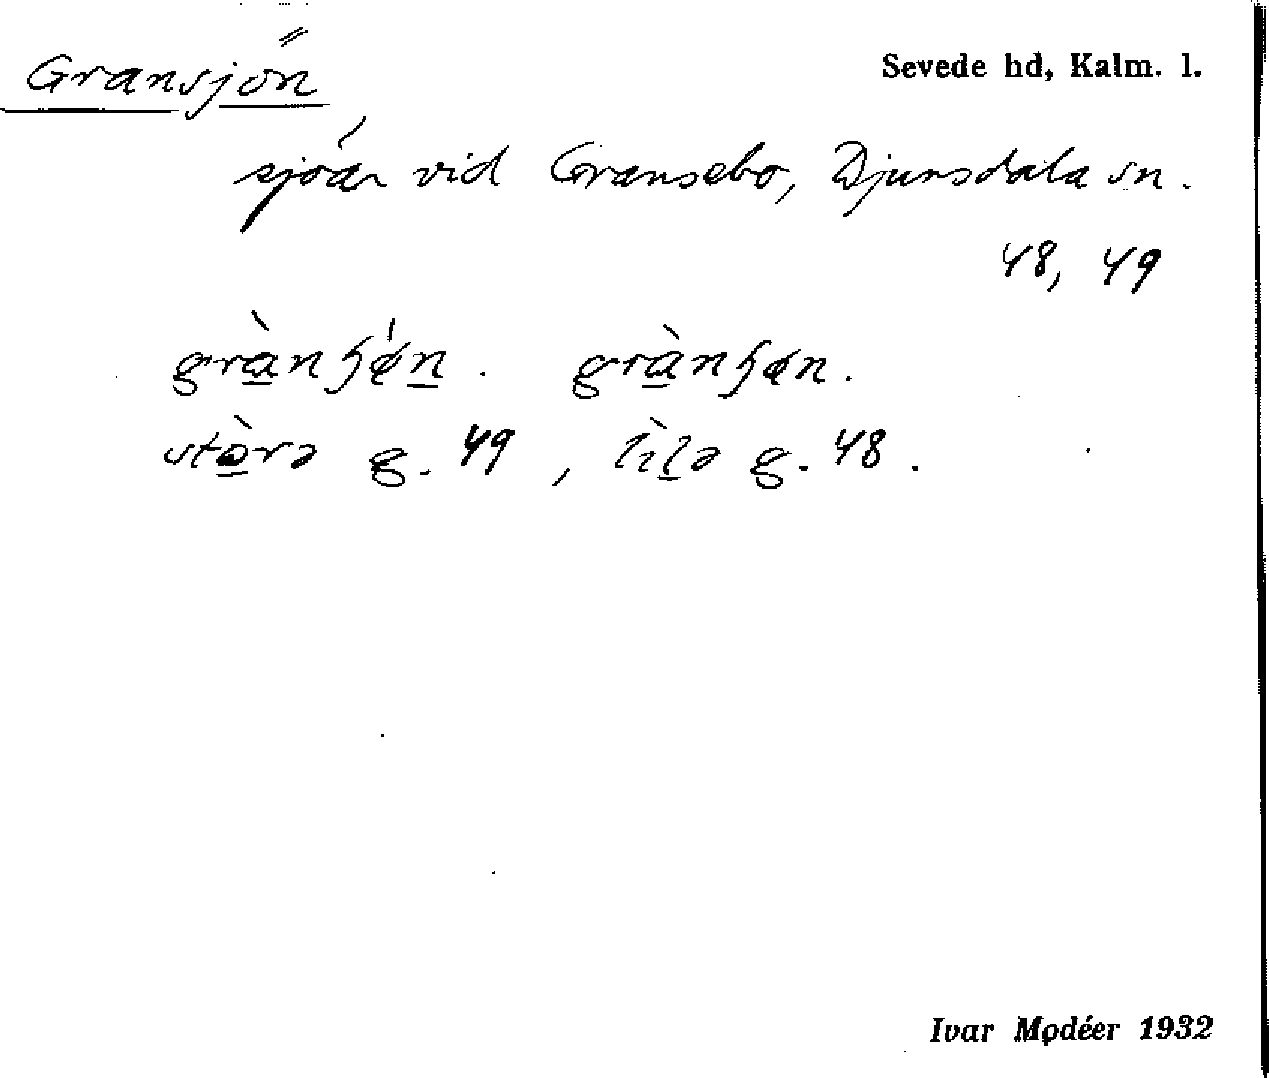 Gransjön
Sevede hd, Kalm. l.
sjöar vid Gransebo, Djursdala sn.
48, 49
grànʃǿn. grànʃøn.
stòrə g. 49, lìlə g. 48.
Ivar Modéer 1932